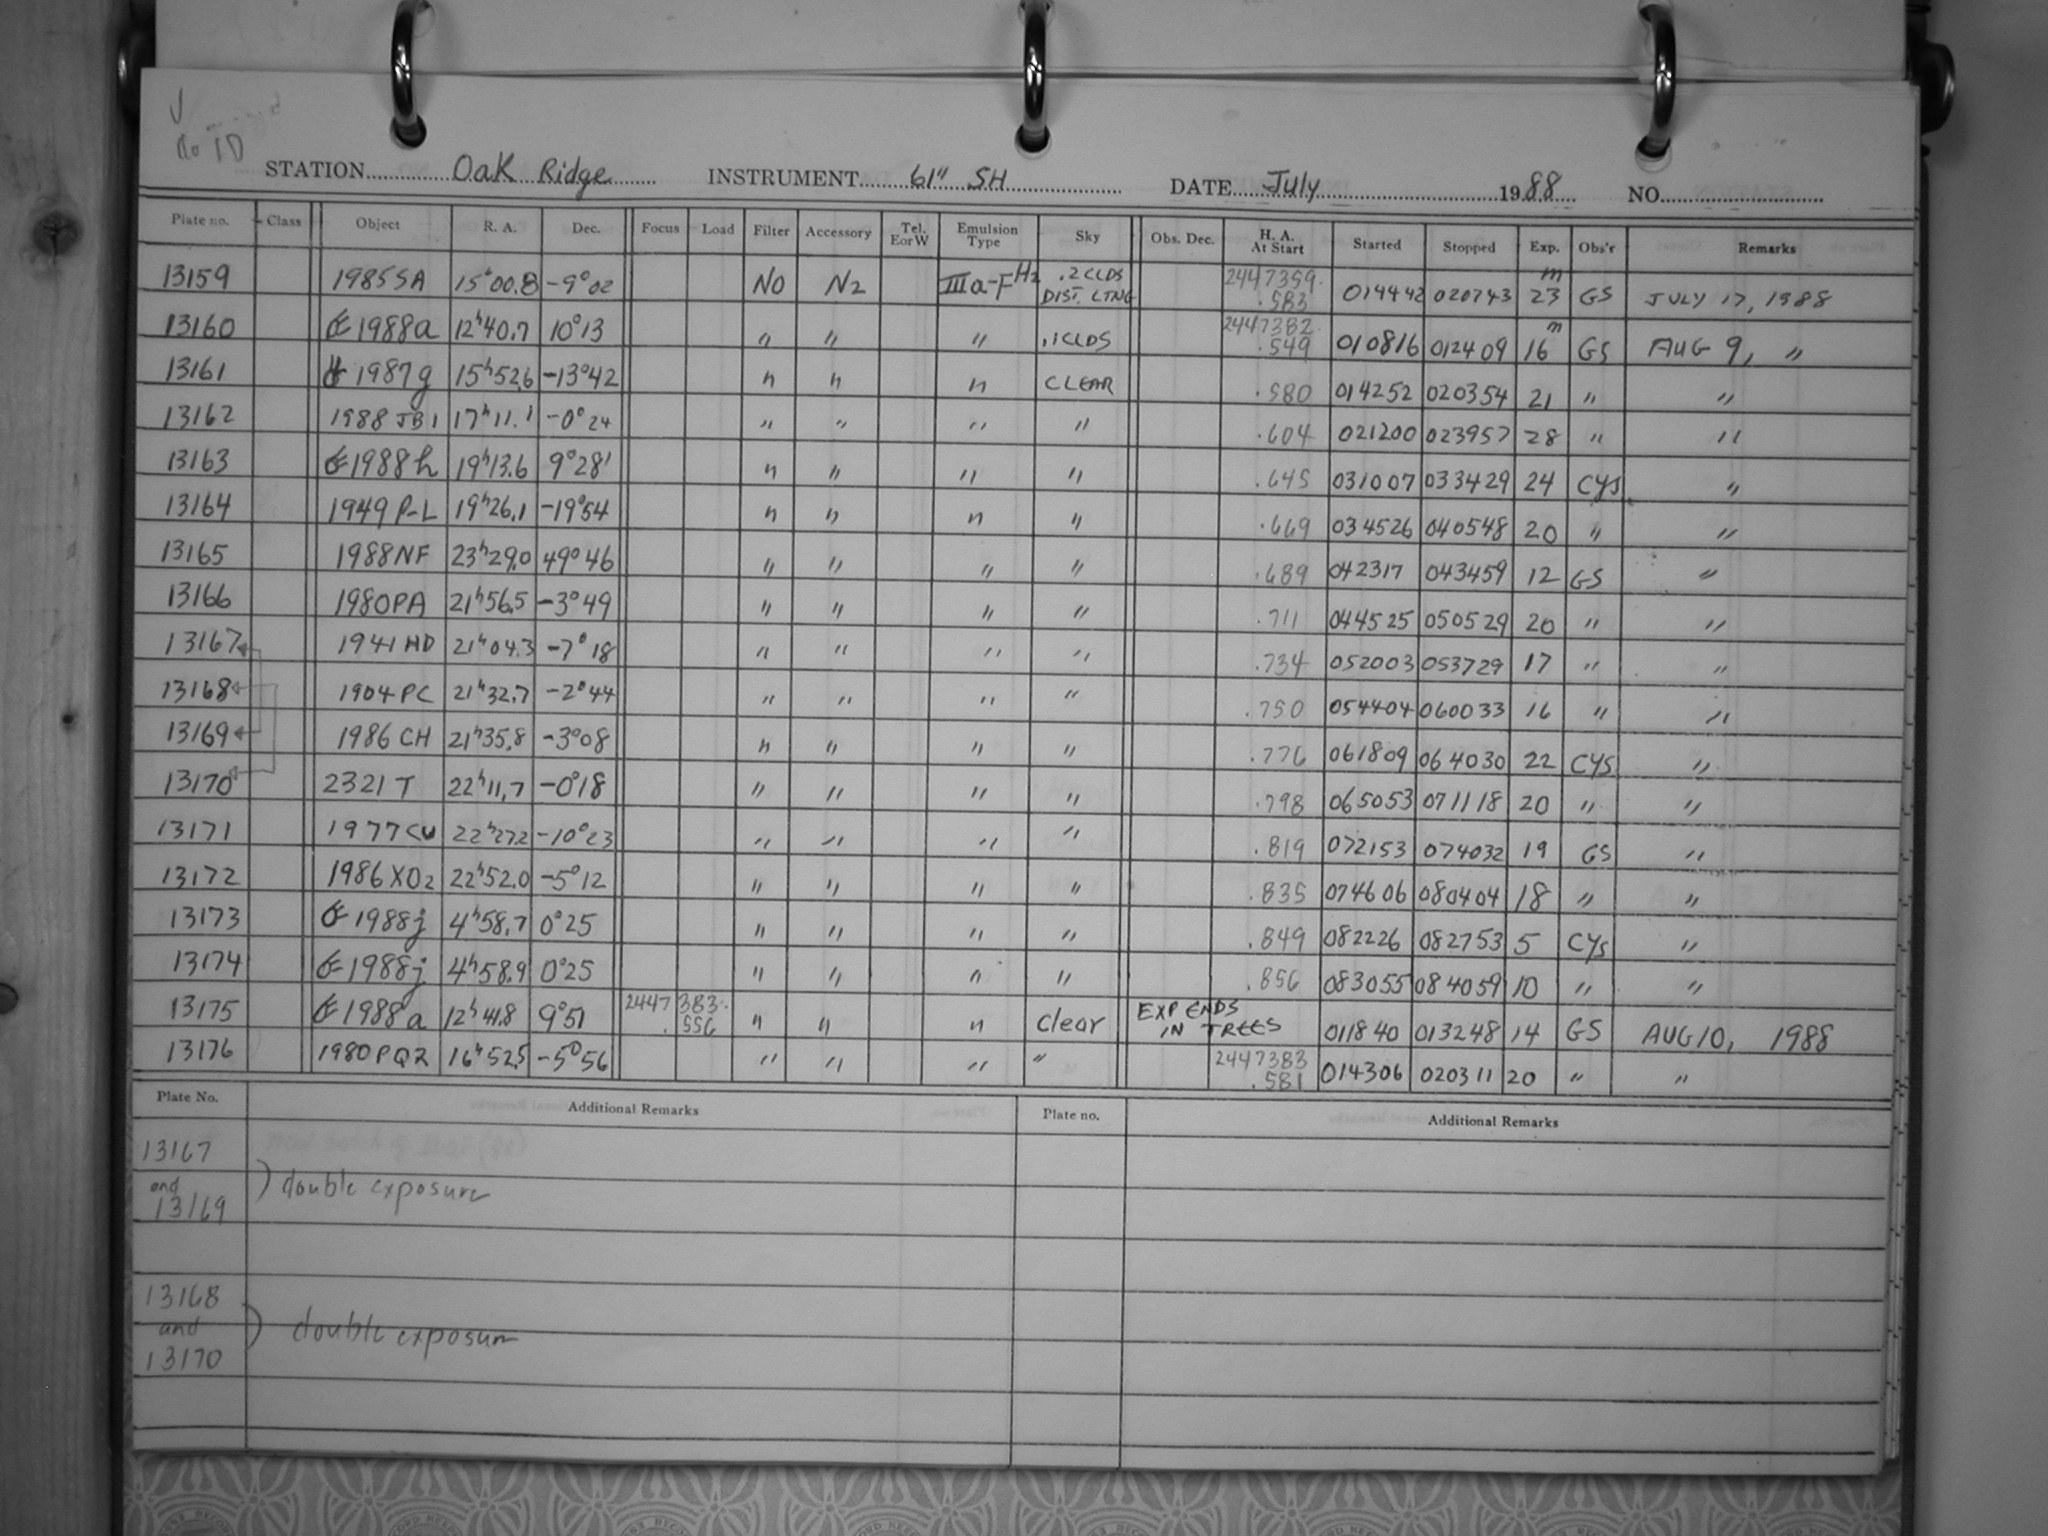 No ID
STATION Oak Ridge INSTRUMENT 61" SH DATE July 1988 NO.
Plate no. Class Object R. A. Dec. Focus Load Filter Accessory Tel. E or W Emulsion Type Sky Obs. Dec. H. A. At Start Started Stopped Exp. Obs'r Remarks
13159 1985SA 15h00.8 -9°02 NO N2 IIIa-F H2 .2CLDS DIST. LTNG 2447359.583 014442 020743 23m GS JULY 17, 1988
13160 1988a 12h40.7 10°13 " " " .1CLDS 2447382.549 010816 012409 16m GS AUG 9, "
13161 1987g 15h52.6 -13°42 " " " CLEAR .580 014252 020354 21 " "
13162 1988 JB1 17h11.1 -0°24 " " " " .604 021200 023957 28 " "
13163 1988h 19h13.6 9°28' " " " " .645 031007 033429 24 CYS "
13164 1949 P-L 19h26.1 -19°54 " " " " .669 034526 040548 20 " "
13165 1988NF 23h29.0 49°46 " " " " .689 042317 043459 12 GS "
13166 1980PA 21h56.5 -3°49 " " " " .711 044525 050529 20 " "
13167 1941 HD 21h04.3 -7°18 " " " " .734 052003 053729 17 " "
13168 1904 PC 21h32.7 -2°44 " " " " .750 054404 060033 16 " "
13169 1986 CH 21h35.8 -3°08 " " " " .776 061809 064030 22 CYS "
13170 2321 T 22h11.7 -0°18 " " " " .798 065053 071118 20 " "
13171 1977CU 22h27.2 -10°23 " " " " .819 072153 074032 19 GS "
13172 1986 XO2 22h52.0 -5°12 " " " " .835 074606 080404 18 " "
13173 1988j 4h58.7 0°25 " " " " .849 082226 082753 5 CYS "
13174 1988j 4h58.9 0°25 " " " " .856 083055 084059 10 " "
13175 1988a 12h41.8 9°51 2447383.556 " " " Clear EXP ENDS IN TREES 011840 013248 14 GS AUG 10, 1988
13176 1980PQ2 16h52.5 -5°56 " " " " 2447383.581 014306 020311 20 " "
Plate No. Additional Remarks Plate no. Additional Remarks
13167
and ) double exposure
13169
13168
and ) double exposure
13170